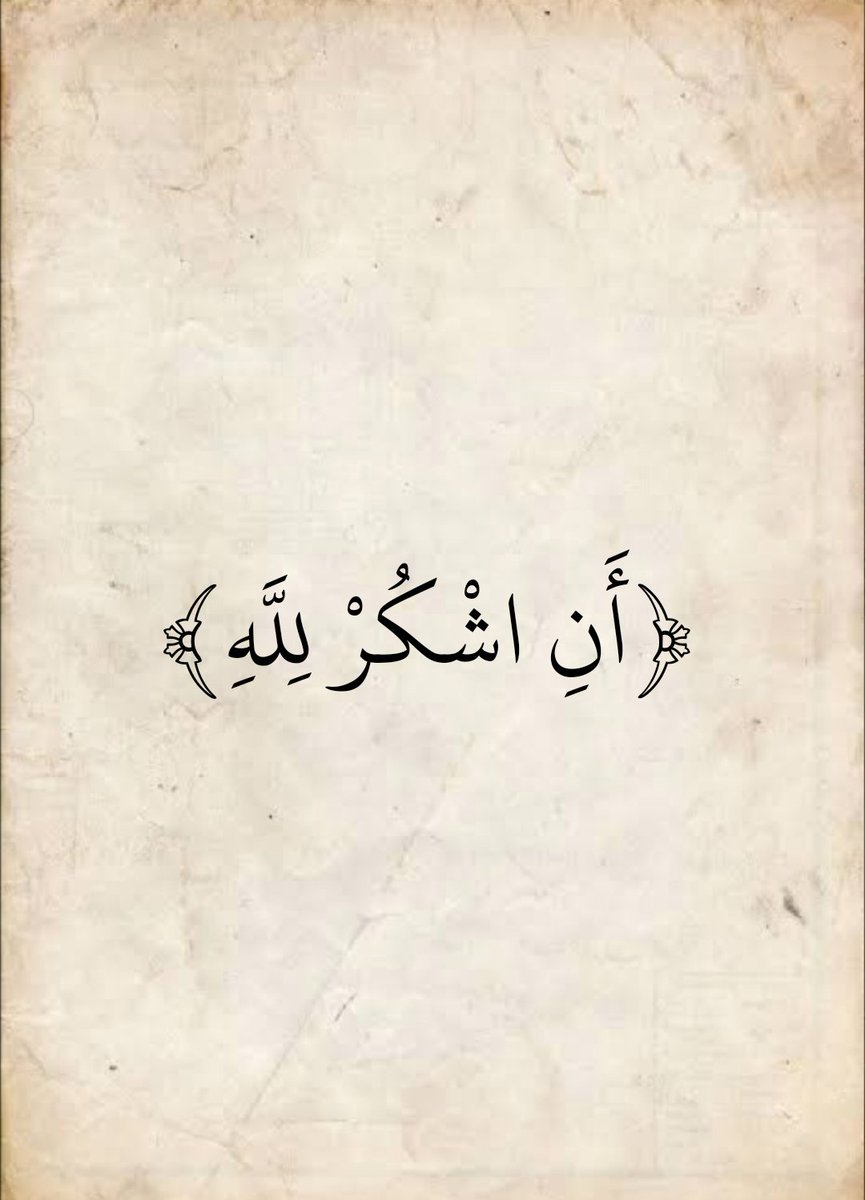 ﴿أَنِ اشْكُرْ لِلَّهِ﴾